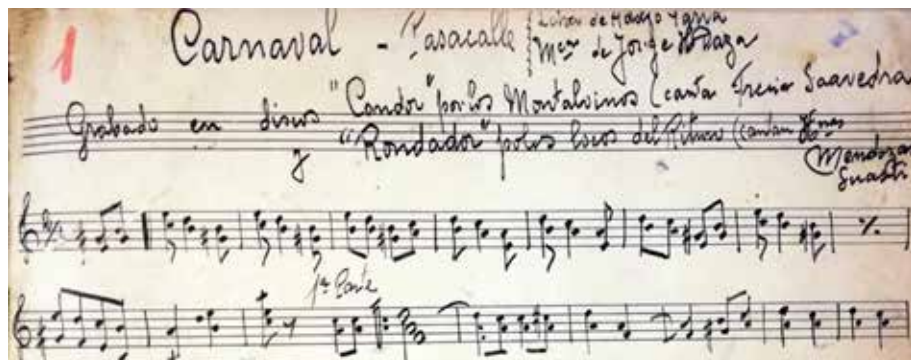 1
Carnaval - Pasacalle { Letra de
Mca de Jorge Araza
Grabado en discos "Condor" por los Montalvinos (canta Saavedra
y "Rondador" por los locos del Ritmo (cantan Hnas
Mendoza
Suasti
1ª Parte